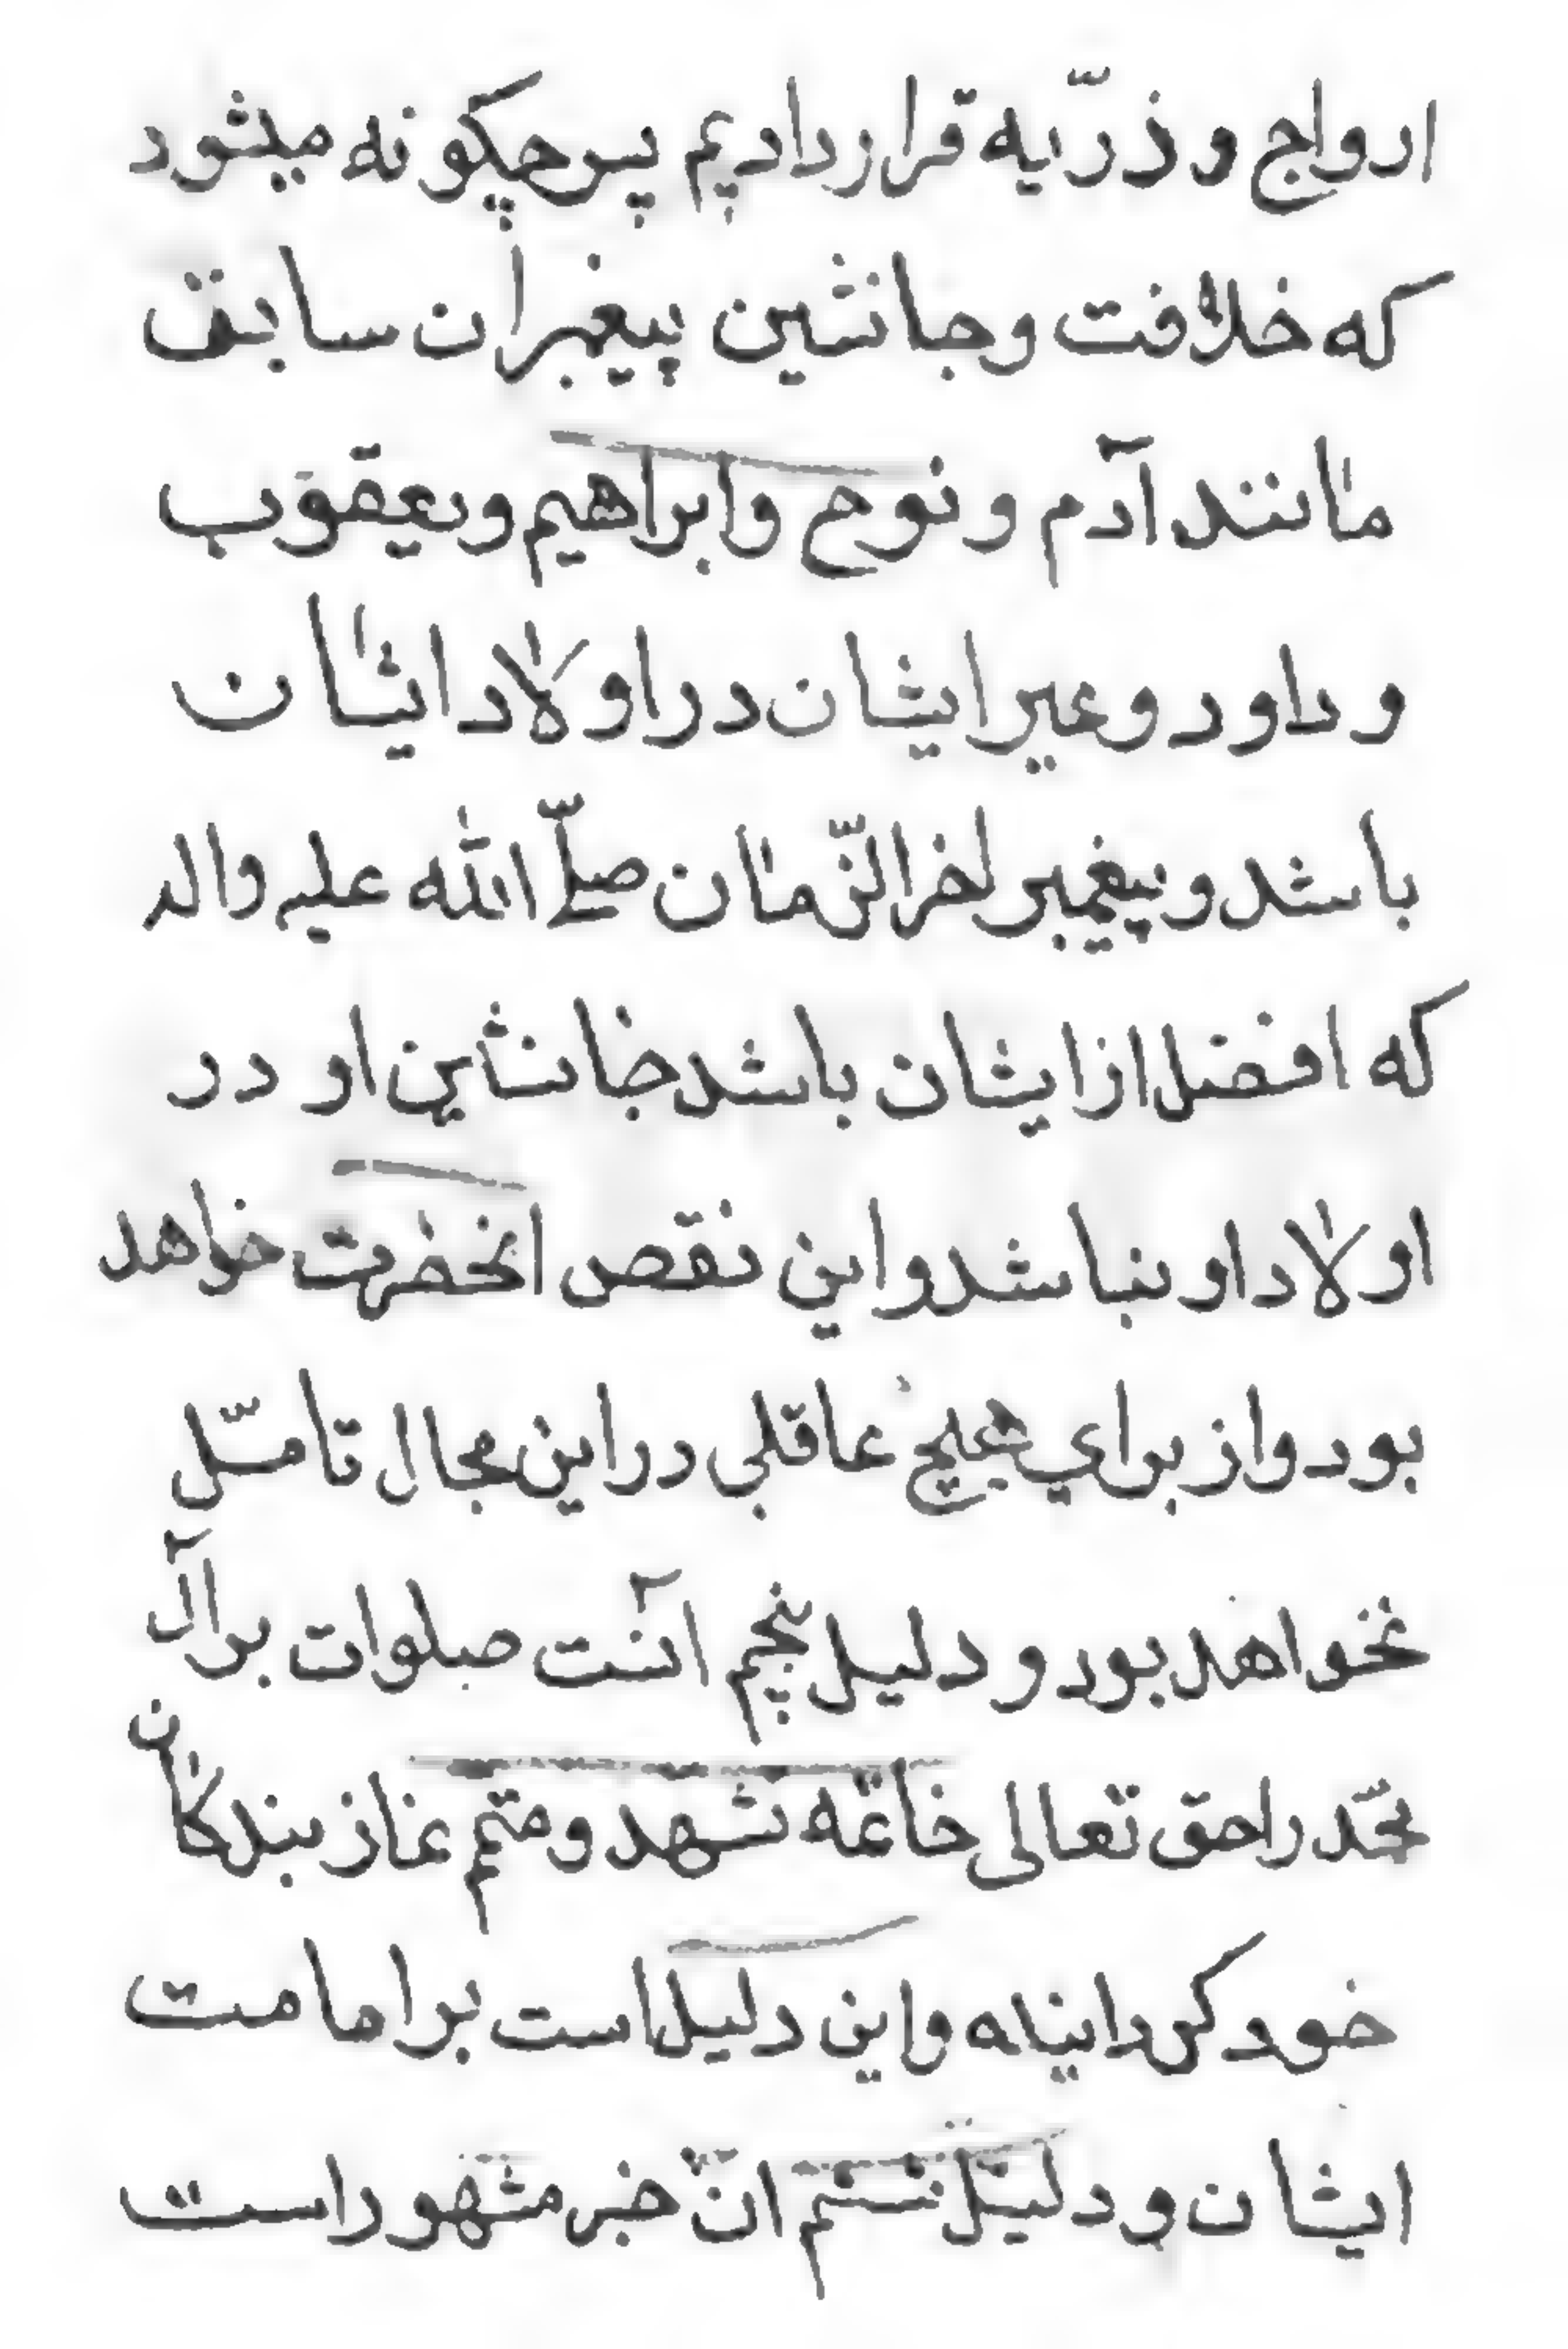 ازواج و ذرّیه قرار دادیم پس چکونه میشود
که خلافت و جانشین پیغمبران سابق
مانند آدم و نوح و ابراهیم و یعقوب
و داود و غیر ایشان در اولاد ایشان
باشد و پیغمبر اخر الزّمان صلّی الله علیه و اله
که افضل از ایشان باشد جانشین او در
اولاد او نباشد و این نقص انحضرت خواهد
بود و از برای هیچ عاقلی در این مجال تامّل
نخواهد بود و دلیل پنجم آنست صلوات بر آل
محمّد را حق تعالی خاتمه تشهد و متمم نماز بندکان
خود کردانیده و این دلیل است بر امامت
ایشان و دلیل ششم آن خبر مشهور است